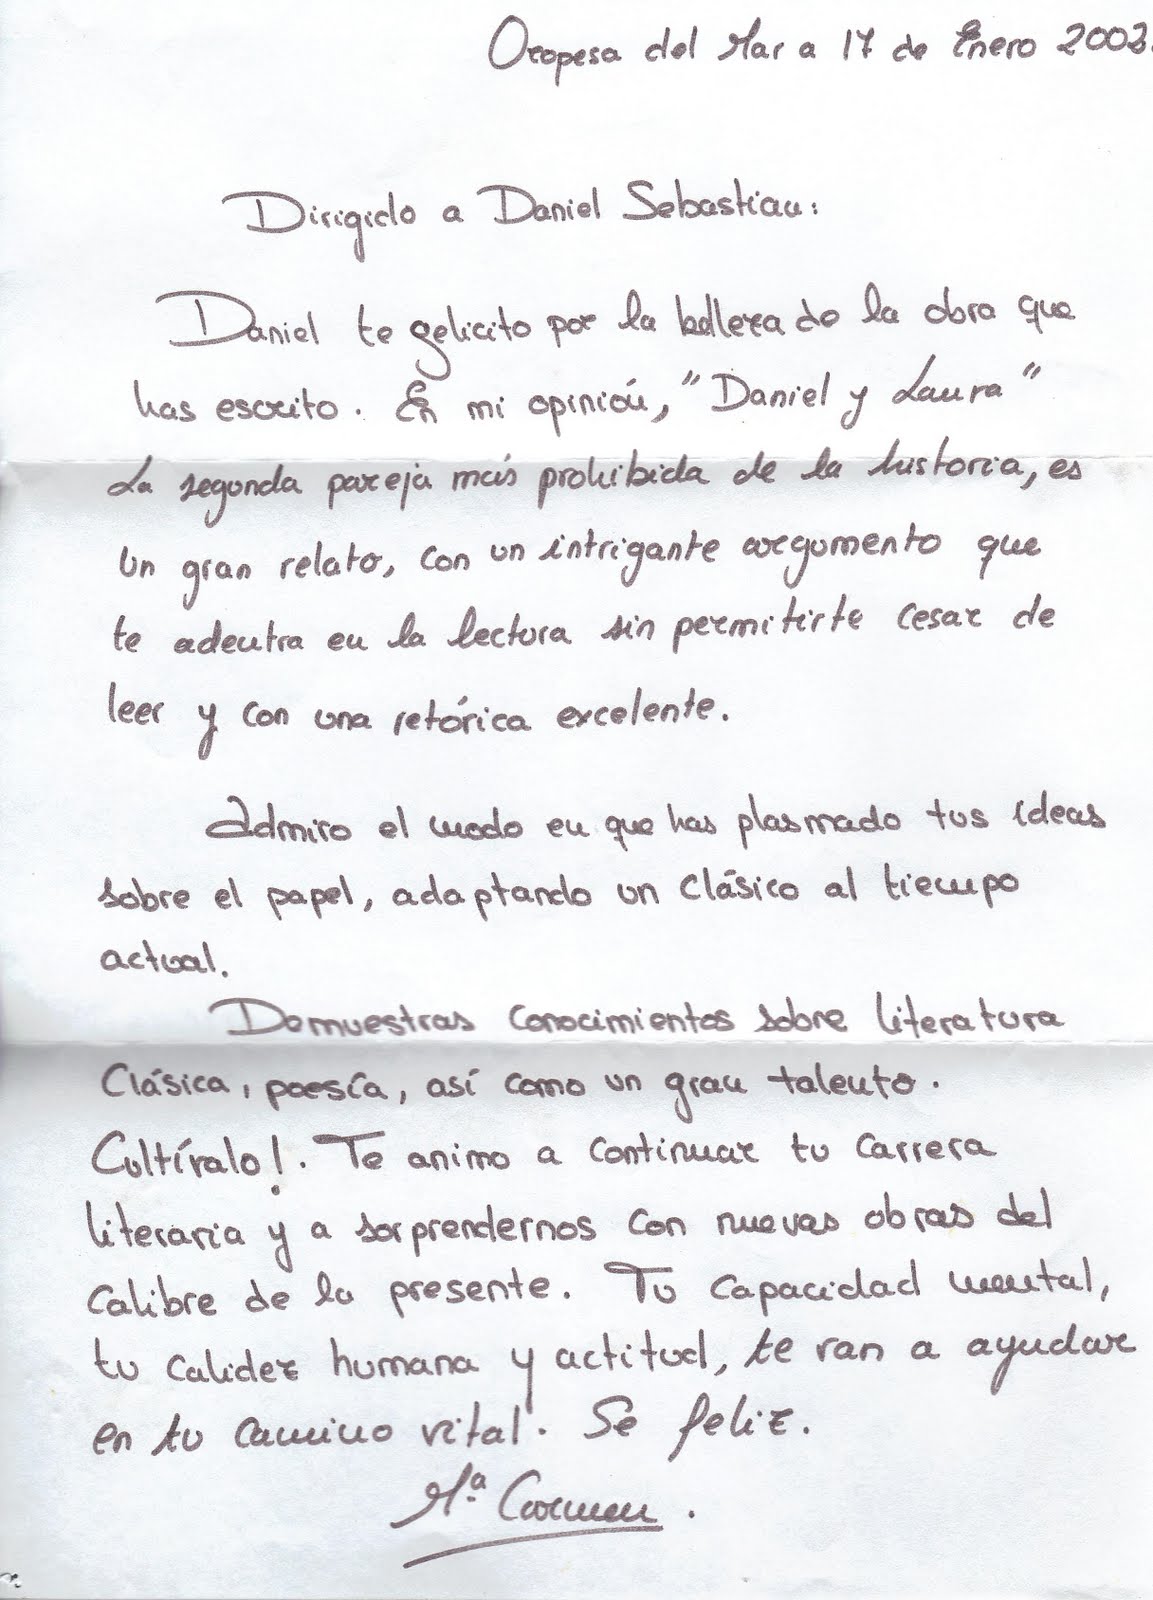 Oropesa del Mar a 17 de Enero 2003.
Dirigido a Daniel Sebastian:
Daniel te felicito por la belleza de la obra que
has escrito. En mi opinión, "Daniel y Laura"
La segunda pareja más prohibida de la historia, es
un gran relato, con un intrigante argumento que
te adentra en la lectura sin permitirte cesar de
leer y con una retórica excelente.
Admiro el modo en que has plasmado tus ideas
sobre el papel, adaptando un Clásico al tiempo
actual.
Demuestras conocimientos sobre literatura
Clásica, poesía, así como un gran talento.
Cultívalo!. Te animo a continuar tu carrera
literaria y a sorprendernos con nuevas obras del
calibre de la presente. Tu capacidad mental,
tu calidez humana y actitud, te van a ayudar
en tu camino vital. Se feliz.
Mª Carmen.